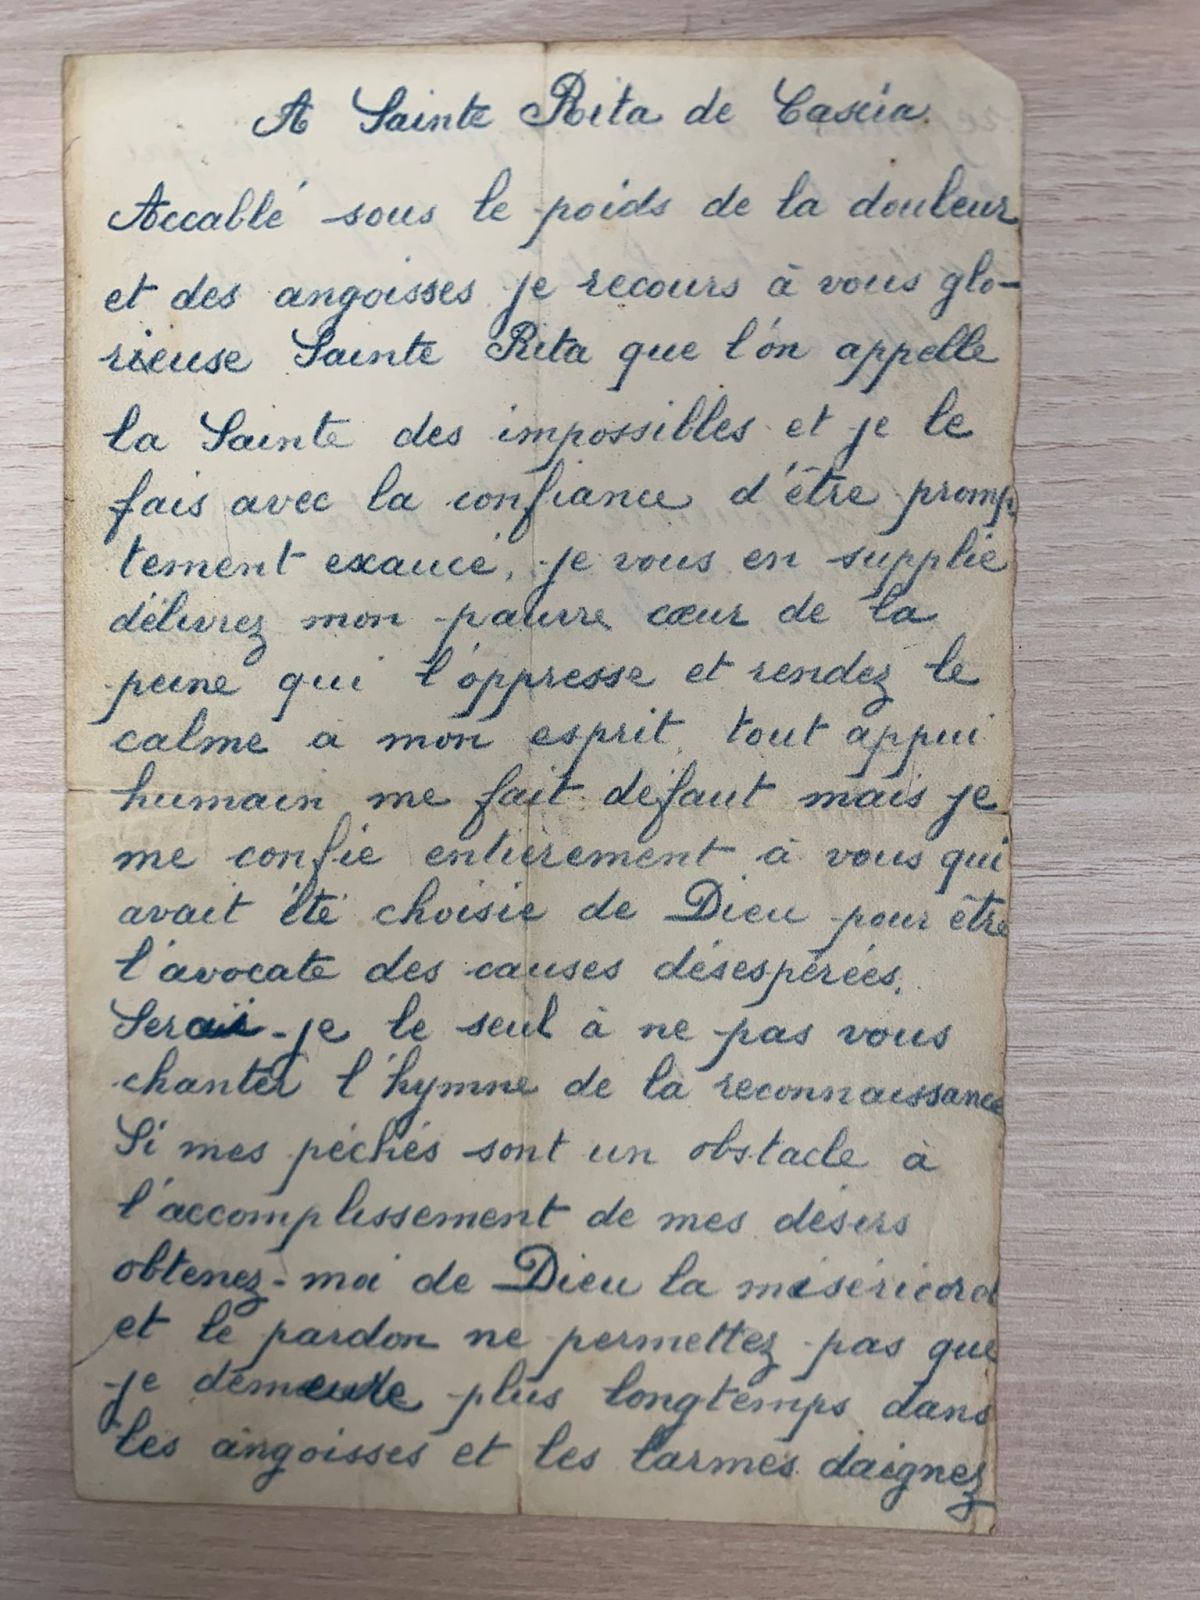 A Sainte Rita de Cascia.
Accablé sous le poids de la douleur
et des angoisses je recours à vous glo-
rieuse Sainte Rita que l'on appelle
la Sainte des impossibles et je le
fais avec la confiance d'être promp
tement exaucé, je vous en supplie
délivrez mon pauvre cœur de la
peine qui l'oppresse et rendez le
calme a mon esprit, tout appui
humain me fait défaut mais je
me confie entièrement à vous qui
avait été choisie de Dieu pour être
l'avocate des causes désespérées.
Serai-je le seul à ne pas vous
chanter l'hymne de la reconnaissance
Si mes péchés sont un obstacle à
l'accomplissement de mes désirs
obtenez-moi de Dieu la miséricord
et le pardon ne permettez pas que
je demeure plus longtemps dans
les angoisses et les larmes daignez